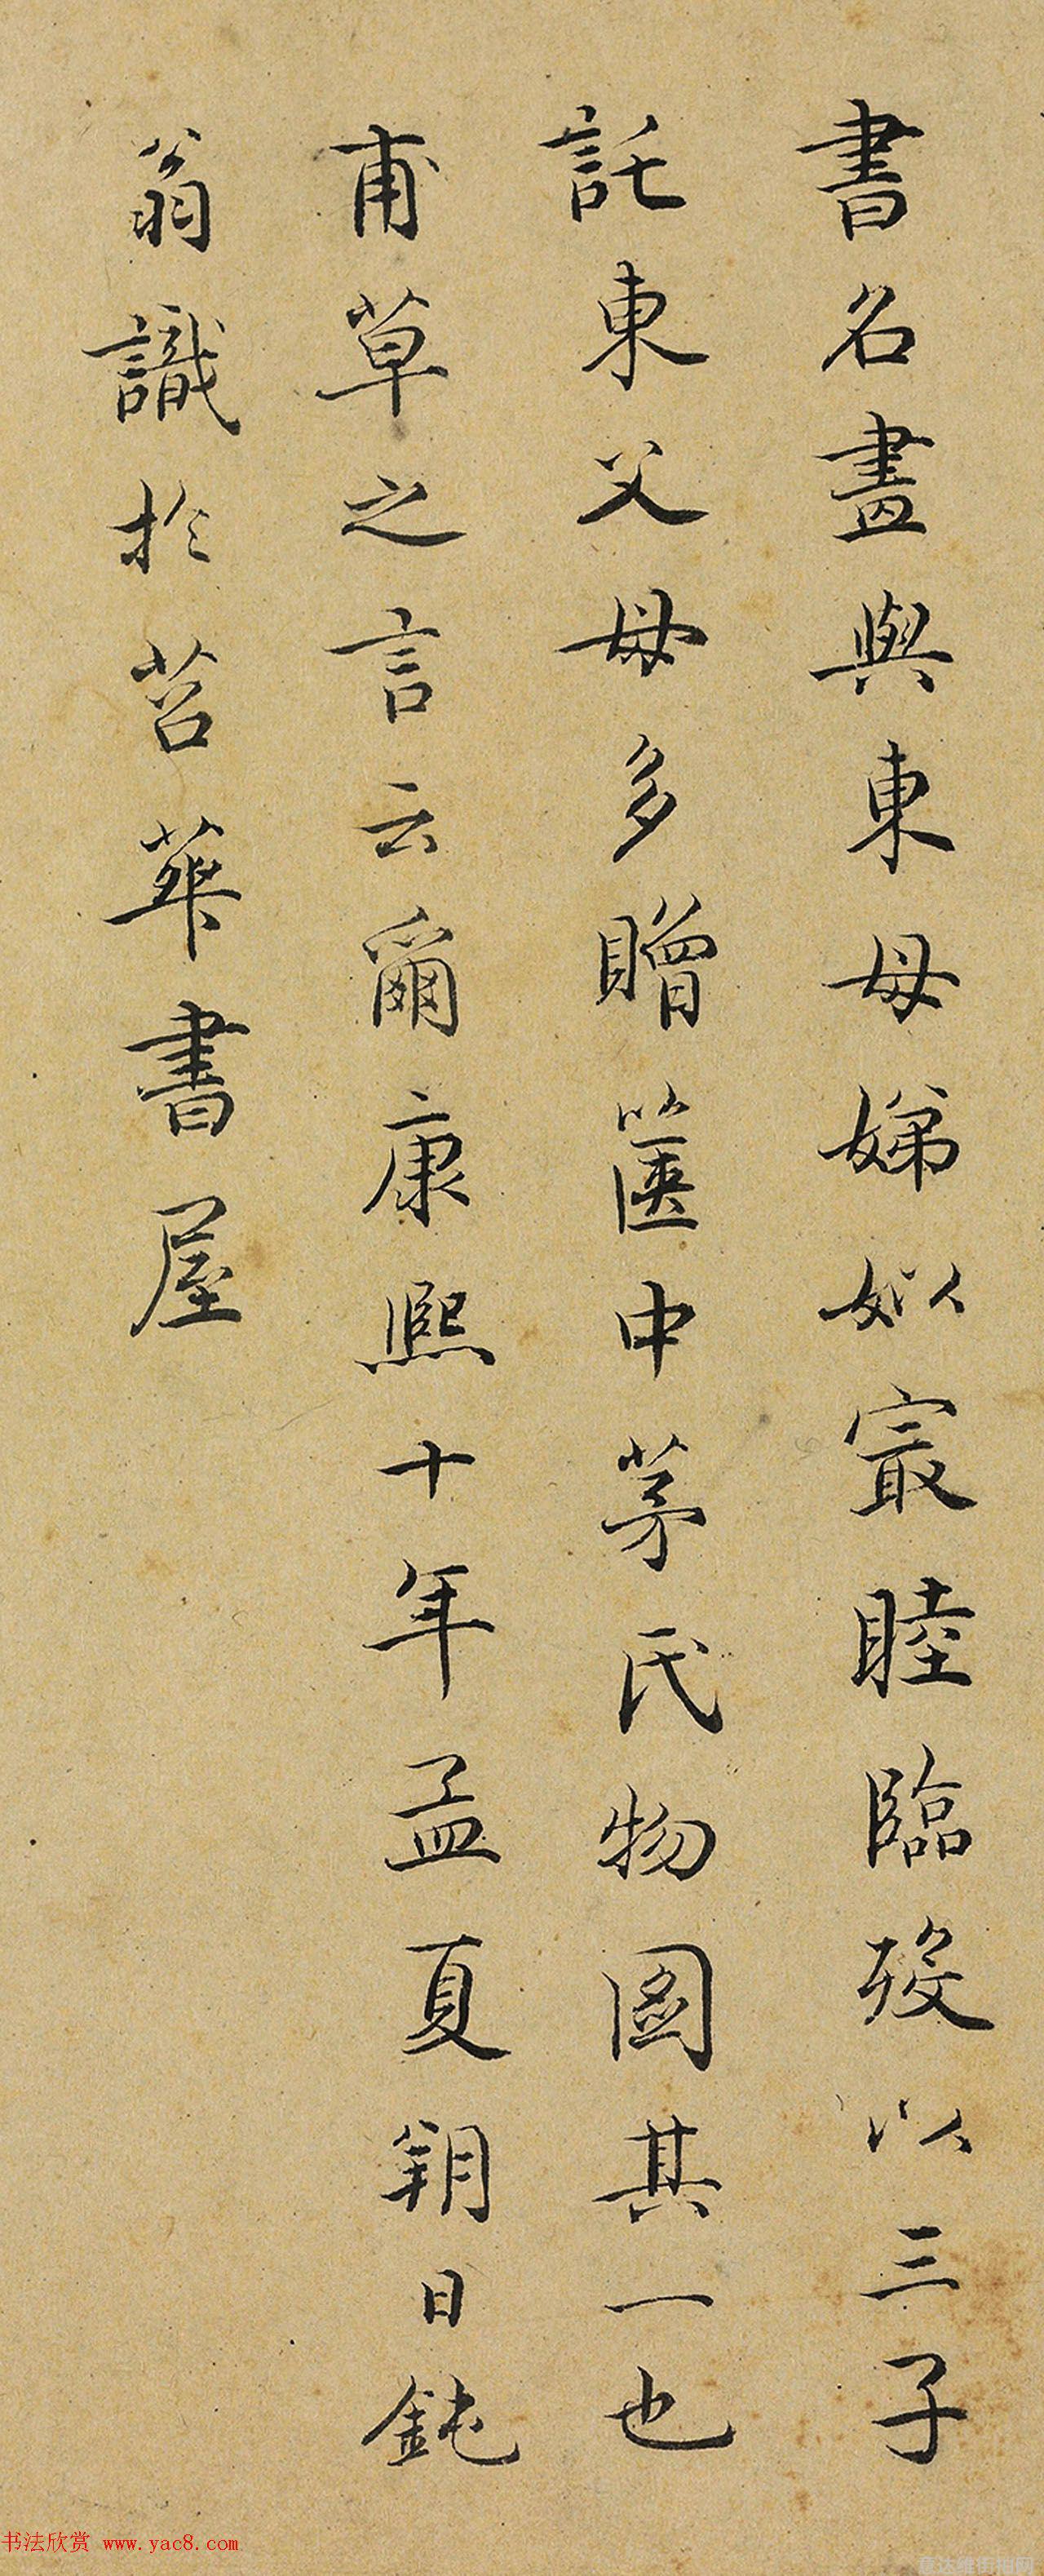 書名畫與東母娣姒㝡睦臨歿以三子
託東父母多贈篋中茅氏物圖其一也
甫草之言云爾康熙十年孟夏朔日鈍
翁識於苕華書屋
书法欣赏 www.yac8.com